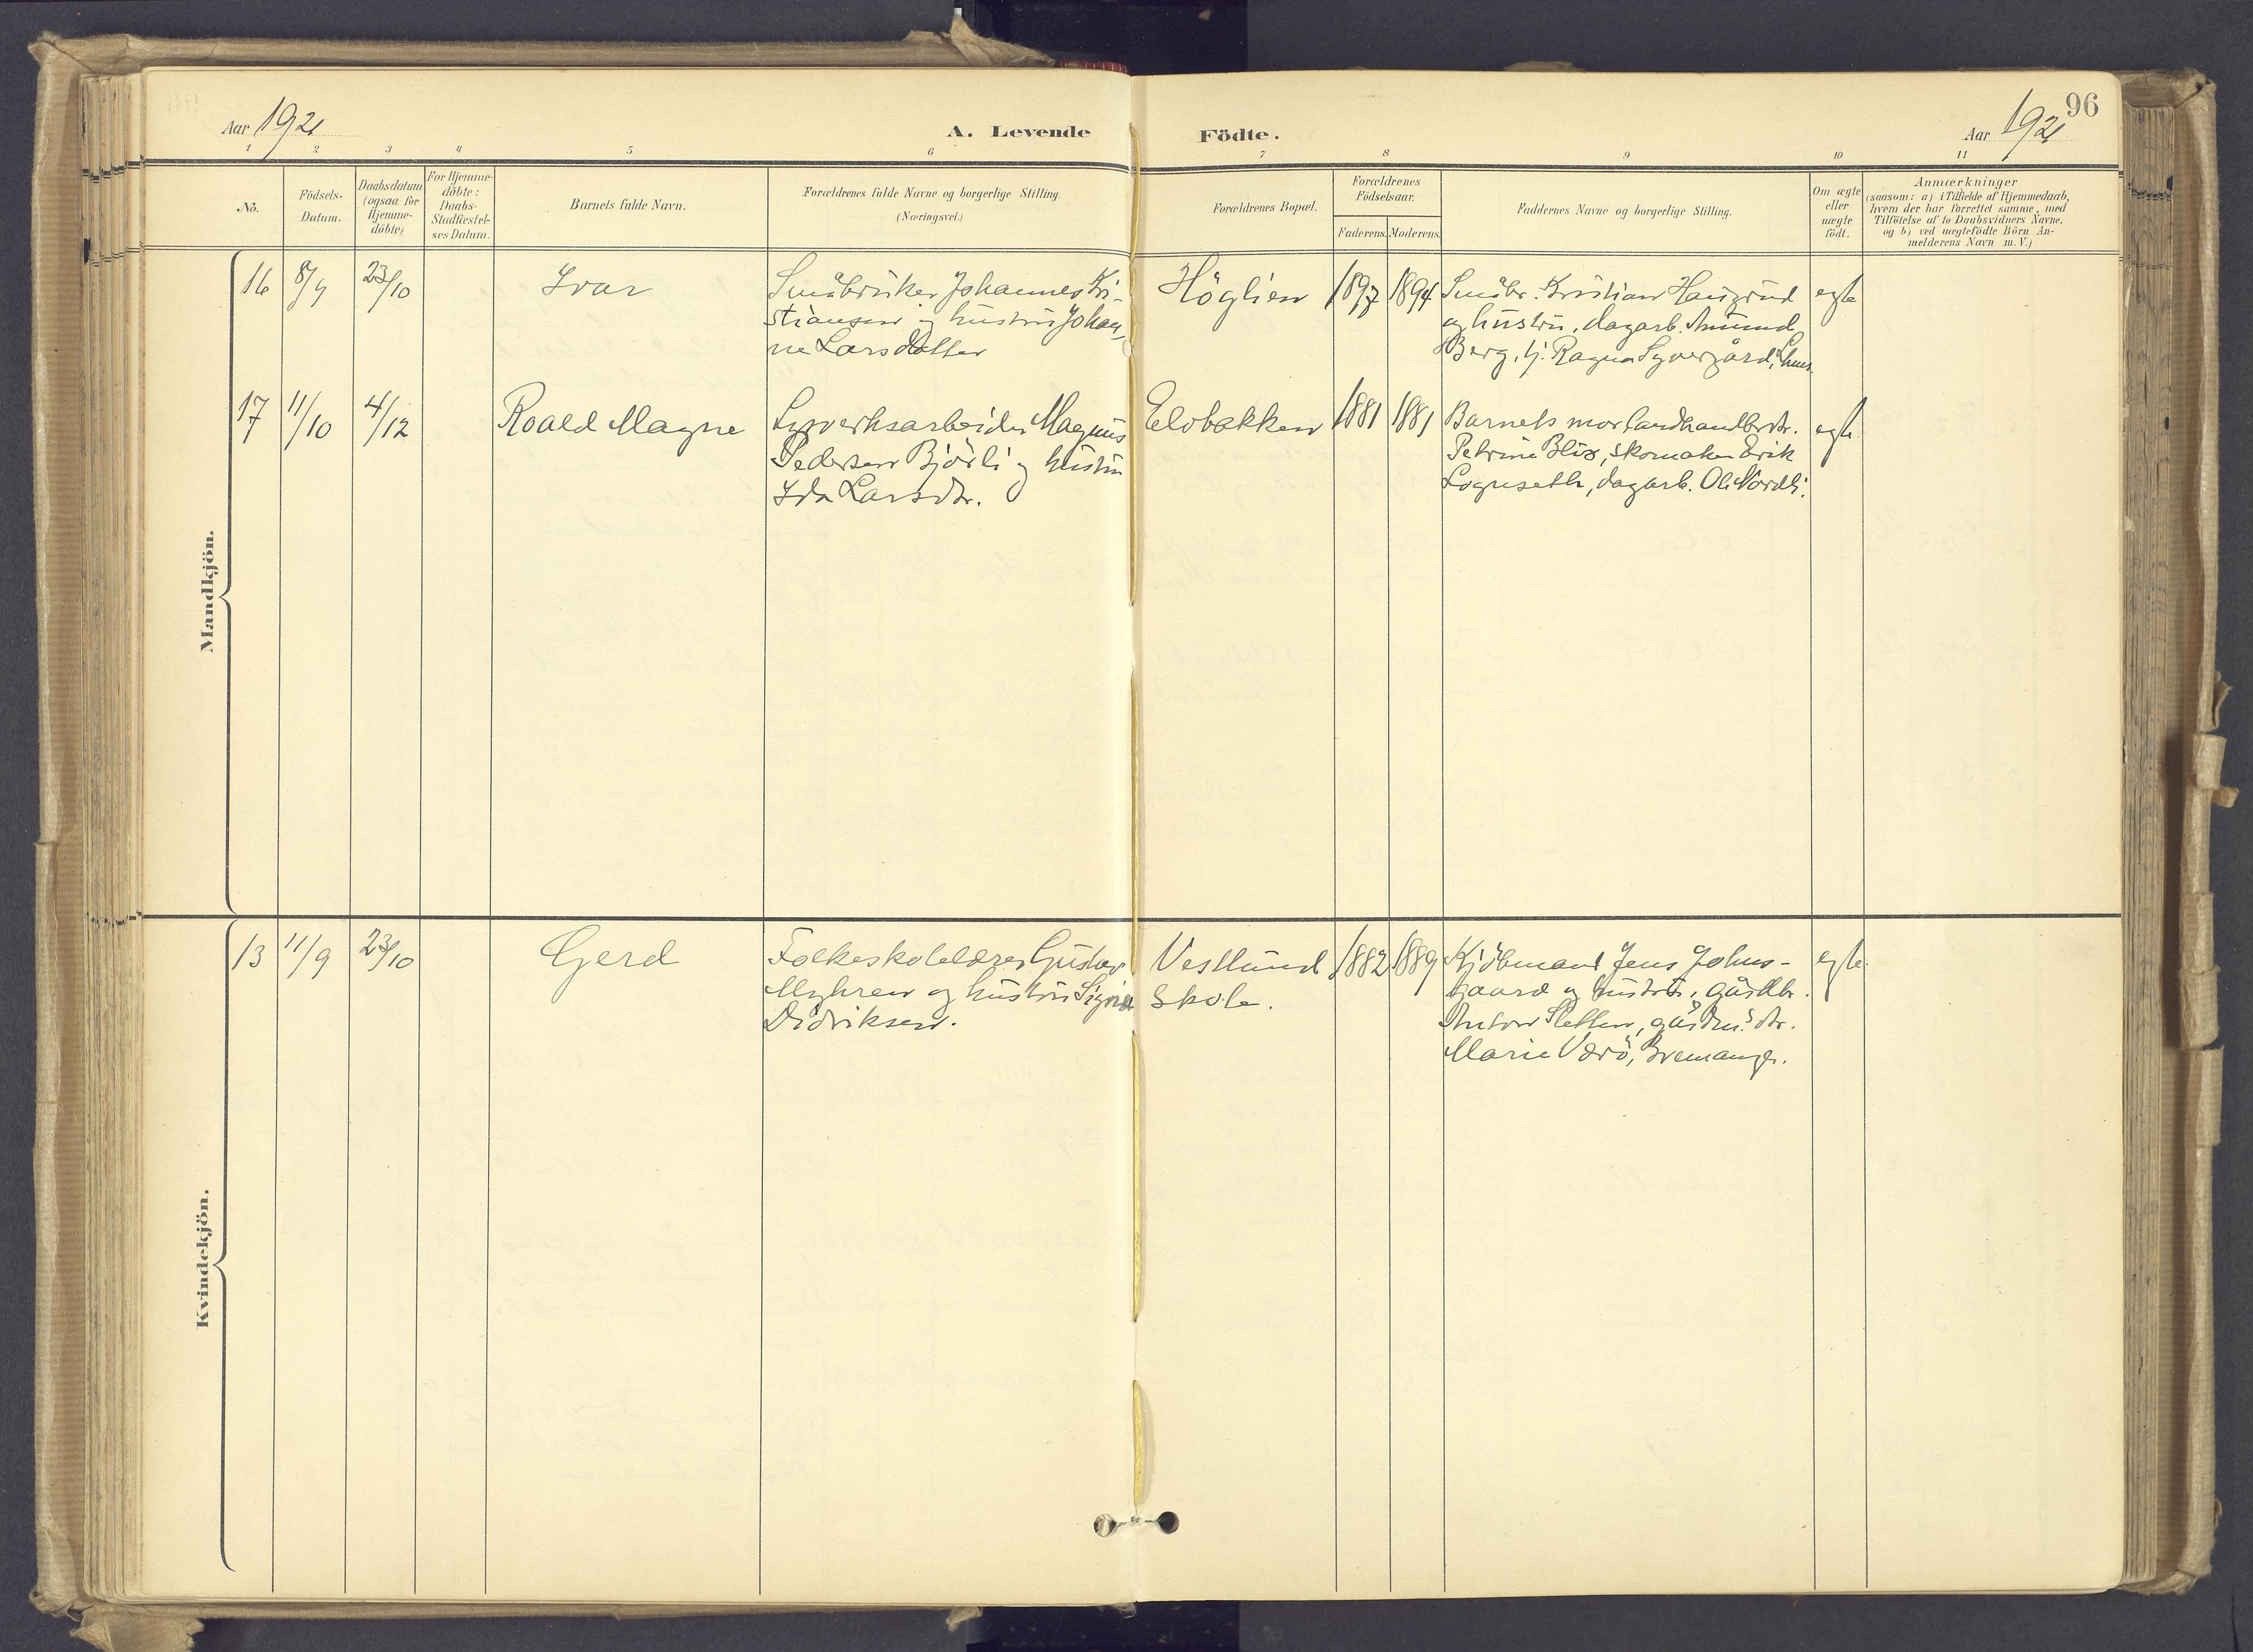 96
Aar 1921
A. Levende Födte.
Aar 1921
1 2 3 4 5 6 7 8 9 10 11
No.
Födsels-
Datum.
Daabsdatum
(ogsaa for
Hjemme-
döbte)
For Hjemme-
döbte:
Daabs-
Stadfæstel-
ses Datum.
Barnets fulde Navn.
Forældrenes fulde Navne og borgerlige Stilling.
(Næringsvei.)
Forældrenes Bopæl.
Forældrenes
Födselsaar.
Faderens. Moderens.
Faddernes Navne og borgerlige Stilling.
Om ægte
eller
uægte
födt.
Anmærkninger
(saasom: a) i Tilfælde af Hjemmedaab,
hvem der har forrettet samme, med
Tilföielse af to Daabsvidners Navne,
og b) ved uægtefödte Börn An-
melderens Navn m. V.)
Mandkjön.
16 8/9 23/10 Ivar
Småbruker Johannes Kri-
stiansen og hustru Johan-
ne Larsdatter
Höglien 1897 1894
Småbr. Kristian Haugrud
og hustru, dagarb. Amund
Berg, tj. Ragna Syvergård,
egte
17 11/10 4/12 Roald Magne
Magnus
Pedersen Bjórli og hustru
Ida Larsdtr.
Elvbakken 1881 1881
Barnets mor, landhandlerdtr.
Petrine Blix, skomaker Erik
Logneseth, dagarb. Ole Nordli.
egte.
Kvindekjön.
13 11/9 23/10 Gerd
Folkeskolelærer Gustav
Myhren og hustru
Didriksen.
Vestlund
Skole.
1882 1889
Kjöbmand Jens Johns-
gaard og hustru, gårdbr.
Anton Sletten, gårdm.s dtr.
Marie Værö, Bremanger.
egte.